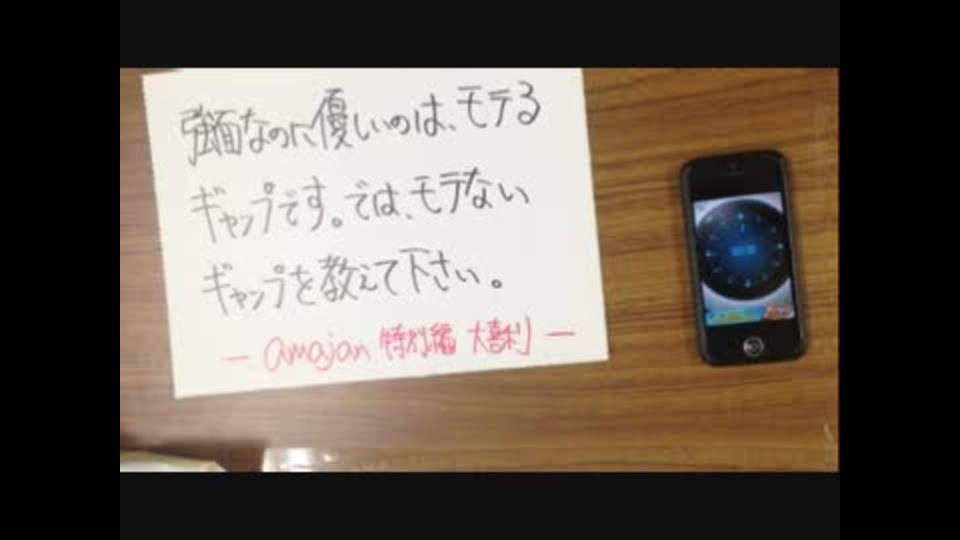 強面なのに優しいのは、モテる
ギャップです。では、モテない
ギャップを教えて下さい。
― amajan 特別編 大喜利 ―